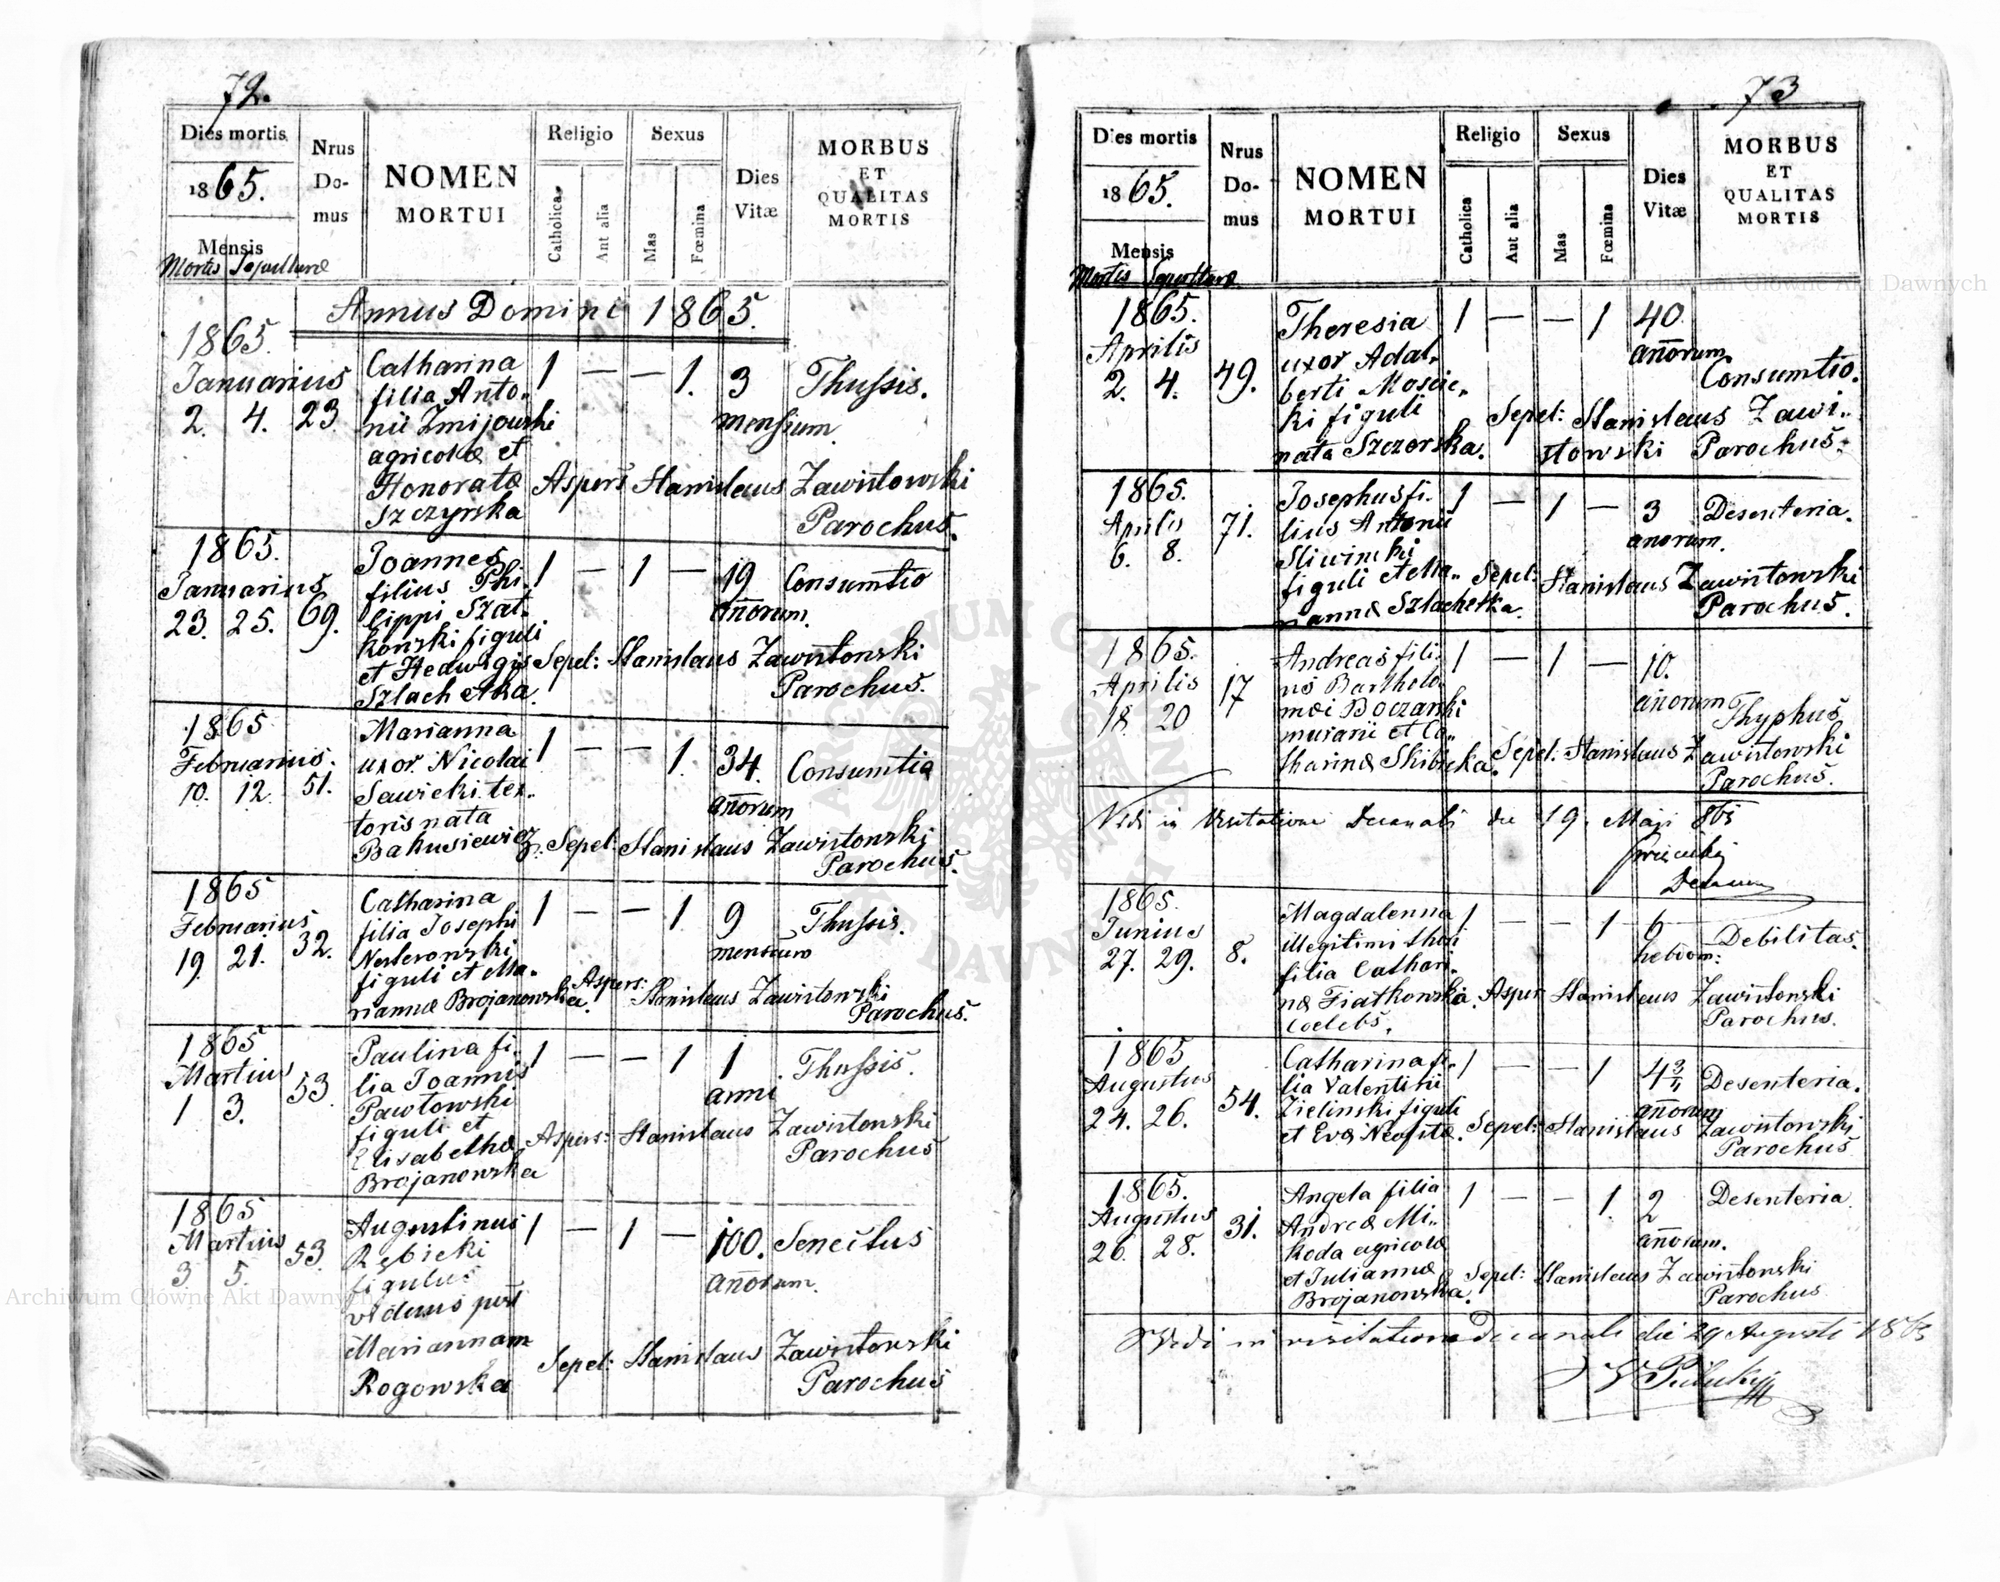 72.
Dies mortis
Nrus Do- mus
NOMEN MORTUI
Religio
Sexus
Dies Vitæ
MORBUS ET QUALITAS MORTIS
1865.
Catholica
Aut alia
Mas
Fœmina
Mensis
Mortis Sepulturæ
Annus Domini 1865.
1865.
Januarius
2. 4. 23
Catharina
filia Anto-
nii Zmijowski
agricolæ et
Honoratæ
Szczyrska
1 — — 1. 3
mensium
Thussis.
Aspers Stanislaus Zawistowski
Parochus.
1865.
Januarius
23. 25. 69.
Joannes
filius Phi-
lippi Szat-
kowski figuli
et Hedwigis
Szlachetka
1 — 1 — 19
añorum.
Consumtio
Sepel: Stanislaus Zawistowski
Parochus.
1865
Februarius.
10. 12. 51.
Marianna
uxor Nicolai
Sawicki tex-
toris nata
Bakusiewicz.
1 — — 1. 34.
añorum
Consumtio
Sepel: Stanislaus Zawistowski
Parochus.
1865
Februarius
19. 21. 32.
Catharina
filia Josephi
Nesterowski
figuli et Ma-
riannæ Brojanowska.
1 — — 1 9
mensium
Thussis.
Aspers: Stanislaus Zawistowski
Parochus.
1865
Martius
1 3. 53
Paulina fi-
lia Joannis
Pawłowski
figuli et
Elisabethæ
Brojanowska
1 — — 1 1
anni
Thussis.
Aspers: Stanislaus Zawistowski
Parochus
1865
Martius
3. 5. 53.
Augustinus
Rębicki
figulus
viduus post
Mariannam
Rogowska
1 — 1 — 100.
añorum.
Senectus
Sepel: Stanislaus Zawistowski
Parochus
73
Dies mortis
Nrus Do- mus
NOMEN MORTUI
Religio
Sexus
Dies Vitæ
MORBUS ET QUALITAS MORTIS
1865.
Catholica
Aut alia
Mas
Fœmina
Mensis
Mortis Sepulturæ
1865.
Aprilis
2. 4. 49.
Theresia
uxor Adal-
berti Moscic-
ki figuli
nata Szczorska.
1 — — 1 40.
añorum.
Consumtio.
Sepel: Stanislaus Zawi-
stowski Parochus.
1865.
Aprilis
6. 8. 71.
Josephus fi-
lius Antonii
Sliwinski
figuli et Ma-
riannæ Szlachetka.
1 — 1 — 3
anorum.
Desenteria.
Sepel: Stanislaus Zawistowski
Parochus.
1865.
Aprilis
18. 20 17
Andreas fili-
us Bartholo-
mæi Boczarski
murarii et Ca-
tharinæ Skibicka.
1 — 1 — 10.
añorum
Thyphus
Sepel: Stanislaus Zawistowski
Parochus.
Vidi in Visitatione Decanali die 19. Maji 865
Decanus
1865.
Junius
27. 29. 8.
Magdalenna
illegitimi thori
filia Cathari-
næ Fiatkowska
coelebs.
1 — — 1 6
hebdom:
Debilitas.
Asper Stanislaus Zawistowski
Parochus.
1865
Augustus
24. 26. 54.
Catharina fi-
lia Valentini
Zielinski figuli
et Evæ Neofitæ.
1 — — 1 4 3/4
añorum
Desenteria.
Sepel: Stanislaus Zawistowski
Parochus
1865.
Augustus
26. 28. 31.
Angela filia
Andreæ Mi-
koda agricolæ
et Juliannæ
Brojanowska.
1 — — 1. 2
añorum.
Desenteria
Sepel: Stanislaus Zawistowski
Parochus
Vidi in visitatione decanali die 29 Augusti 1865
Archiwum Główne Akt Dawnych
Archiwum Główne Akt Dawnych
ARCHIWUM GŁÓWNE AKT DAWNYCH